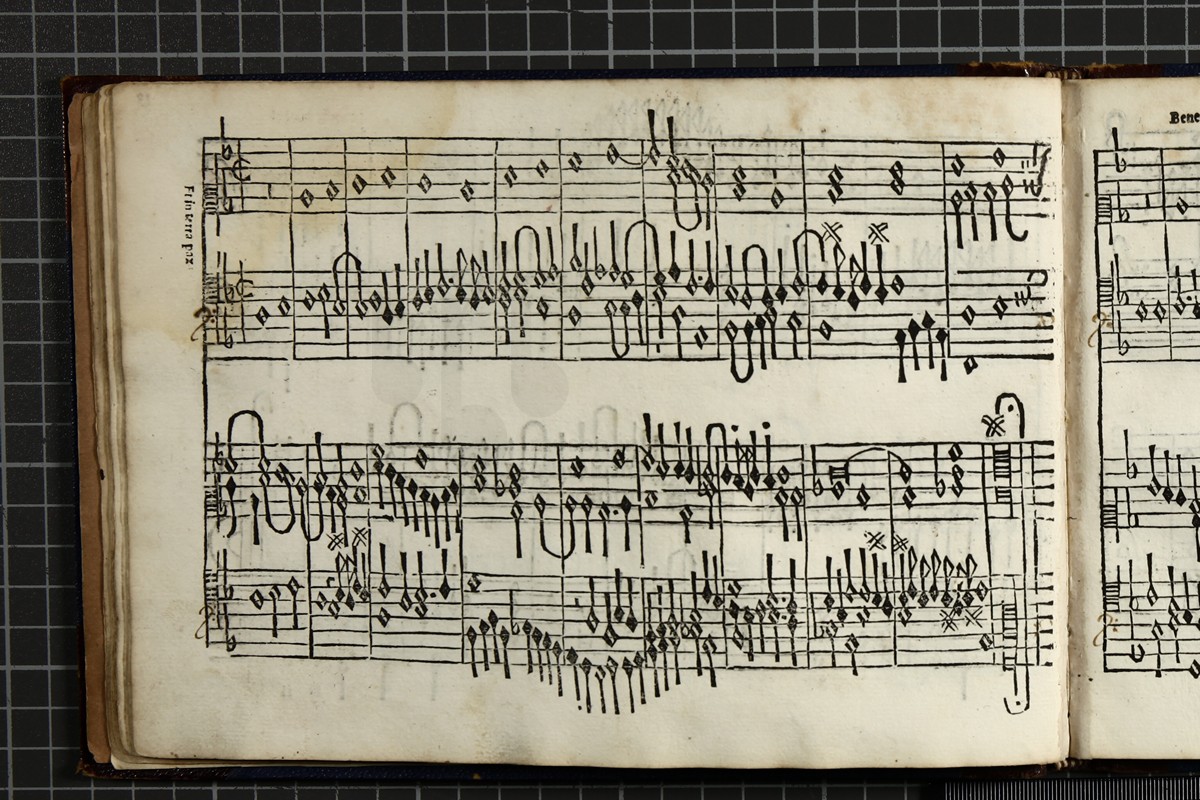 Et in terra pax
Bene